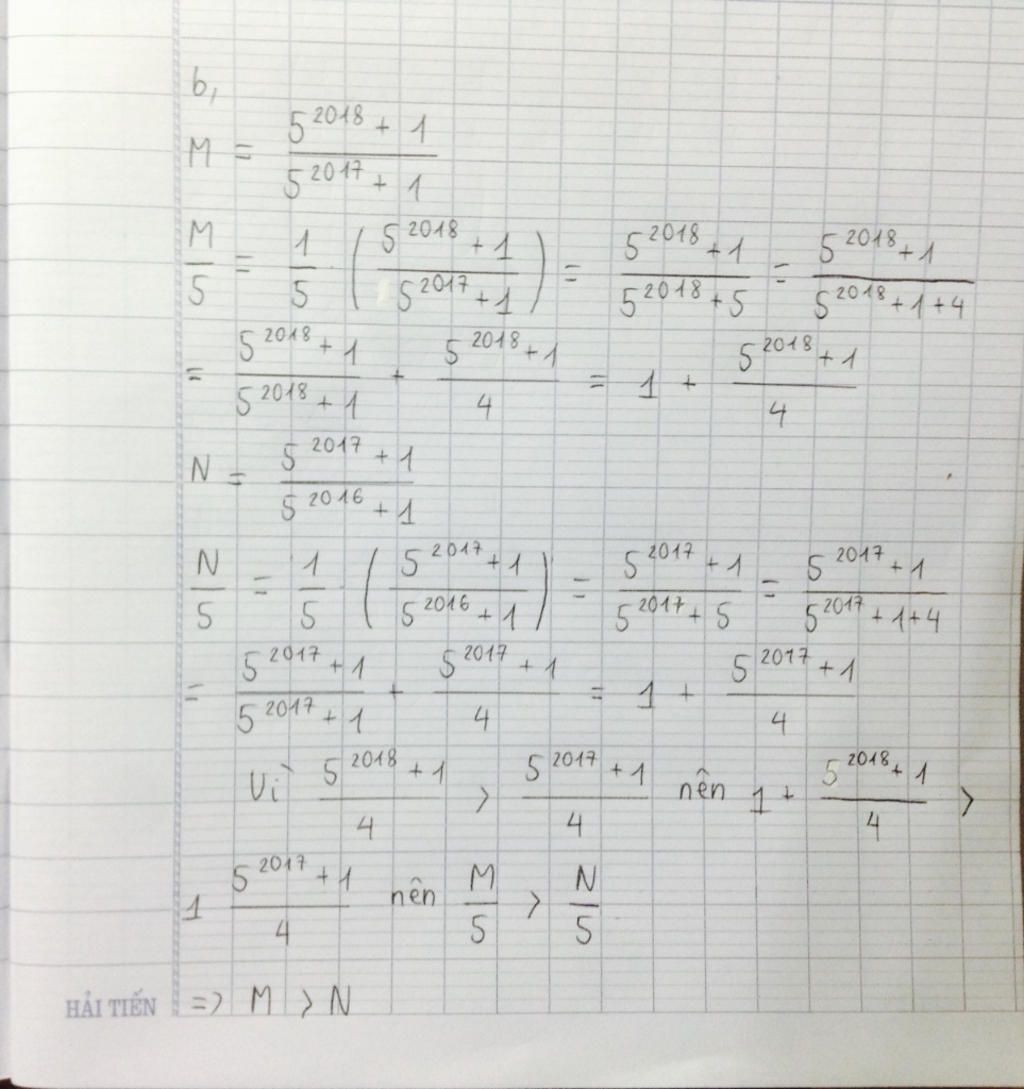 b,
M = \frac{5^{2018} + 1}{5^{2017} + 1}
\frac{M}{5} = \frac{1}{5} \left( \frac{5^{2018} + 1}{5^{2017} + 1} \right) = \frac{5^{2018} + 1}{5^{2018} + 5} = \frac{5^{2018} + 1}{5^{2018} + 1 + 4}
= \frac{5^{2018} + 1}{5^{2018} + 1} + \frac{5^{2018} + 1}{4} = 1 + \frac{5^{2018} + 1}{4}
N = \frac{5^{2017} + 1}{5^{2016} + 1}
\frac{N}{5} = \frac{1}{5} \left( \frac{5^{2017} + 1}{5^{2016} + 1} \right) = \frac{5^{2017} + 1}{5^{2017} + 5} = \frac{5^{2017} + 1}{5^{2017} + 1 + 4}
= \frac{5^{2017} + 1}{5^{2017} + 1} + \frac{5^{2017} + 1}{4} = 1 + \frac{5^{2017} + 1}{4}
Vì \frac{5^{2018} + 1}{4} > \frac{5^{2017} + 1}{4} nên 1 + \frac{5^{2018} + 1}{4} >
1 \frac{5^{2017} + 1}{4} nên \frac{M}{5} > \frac{N}{5}
=> M > N
HẢI TIẾN